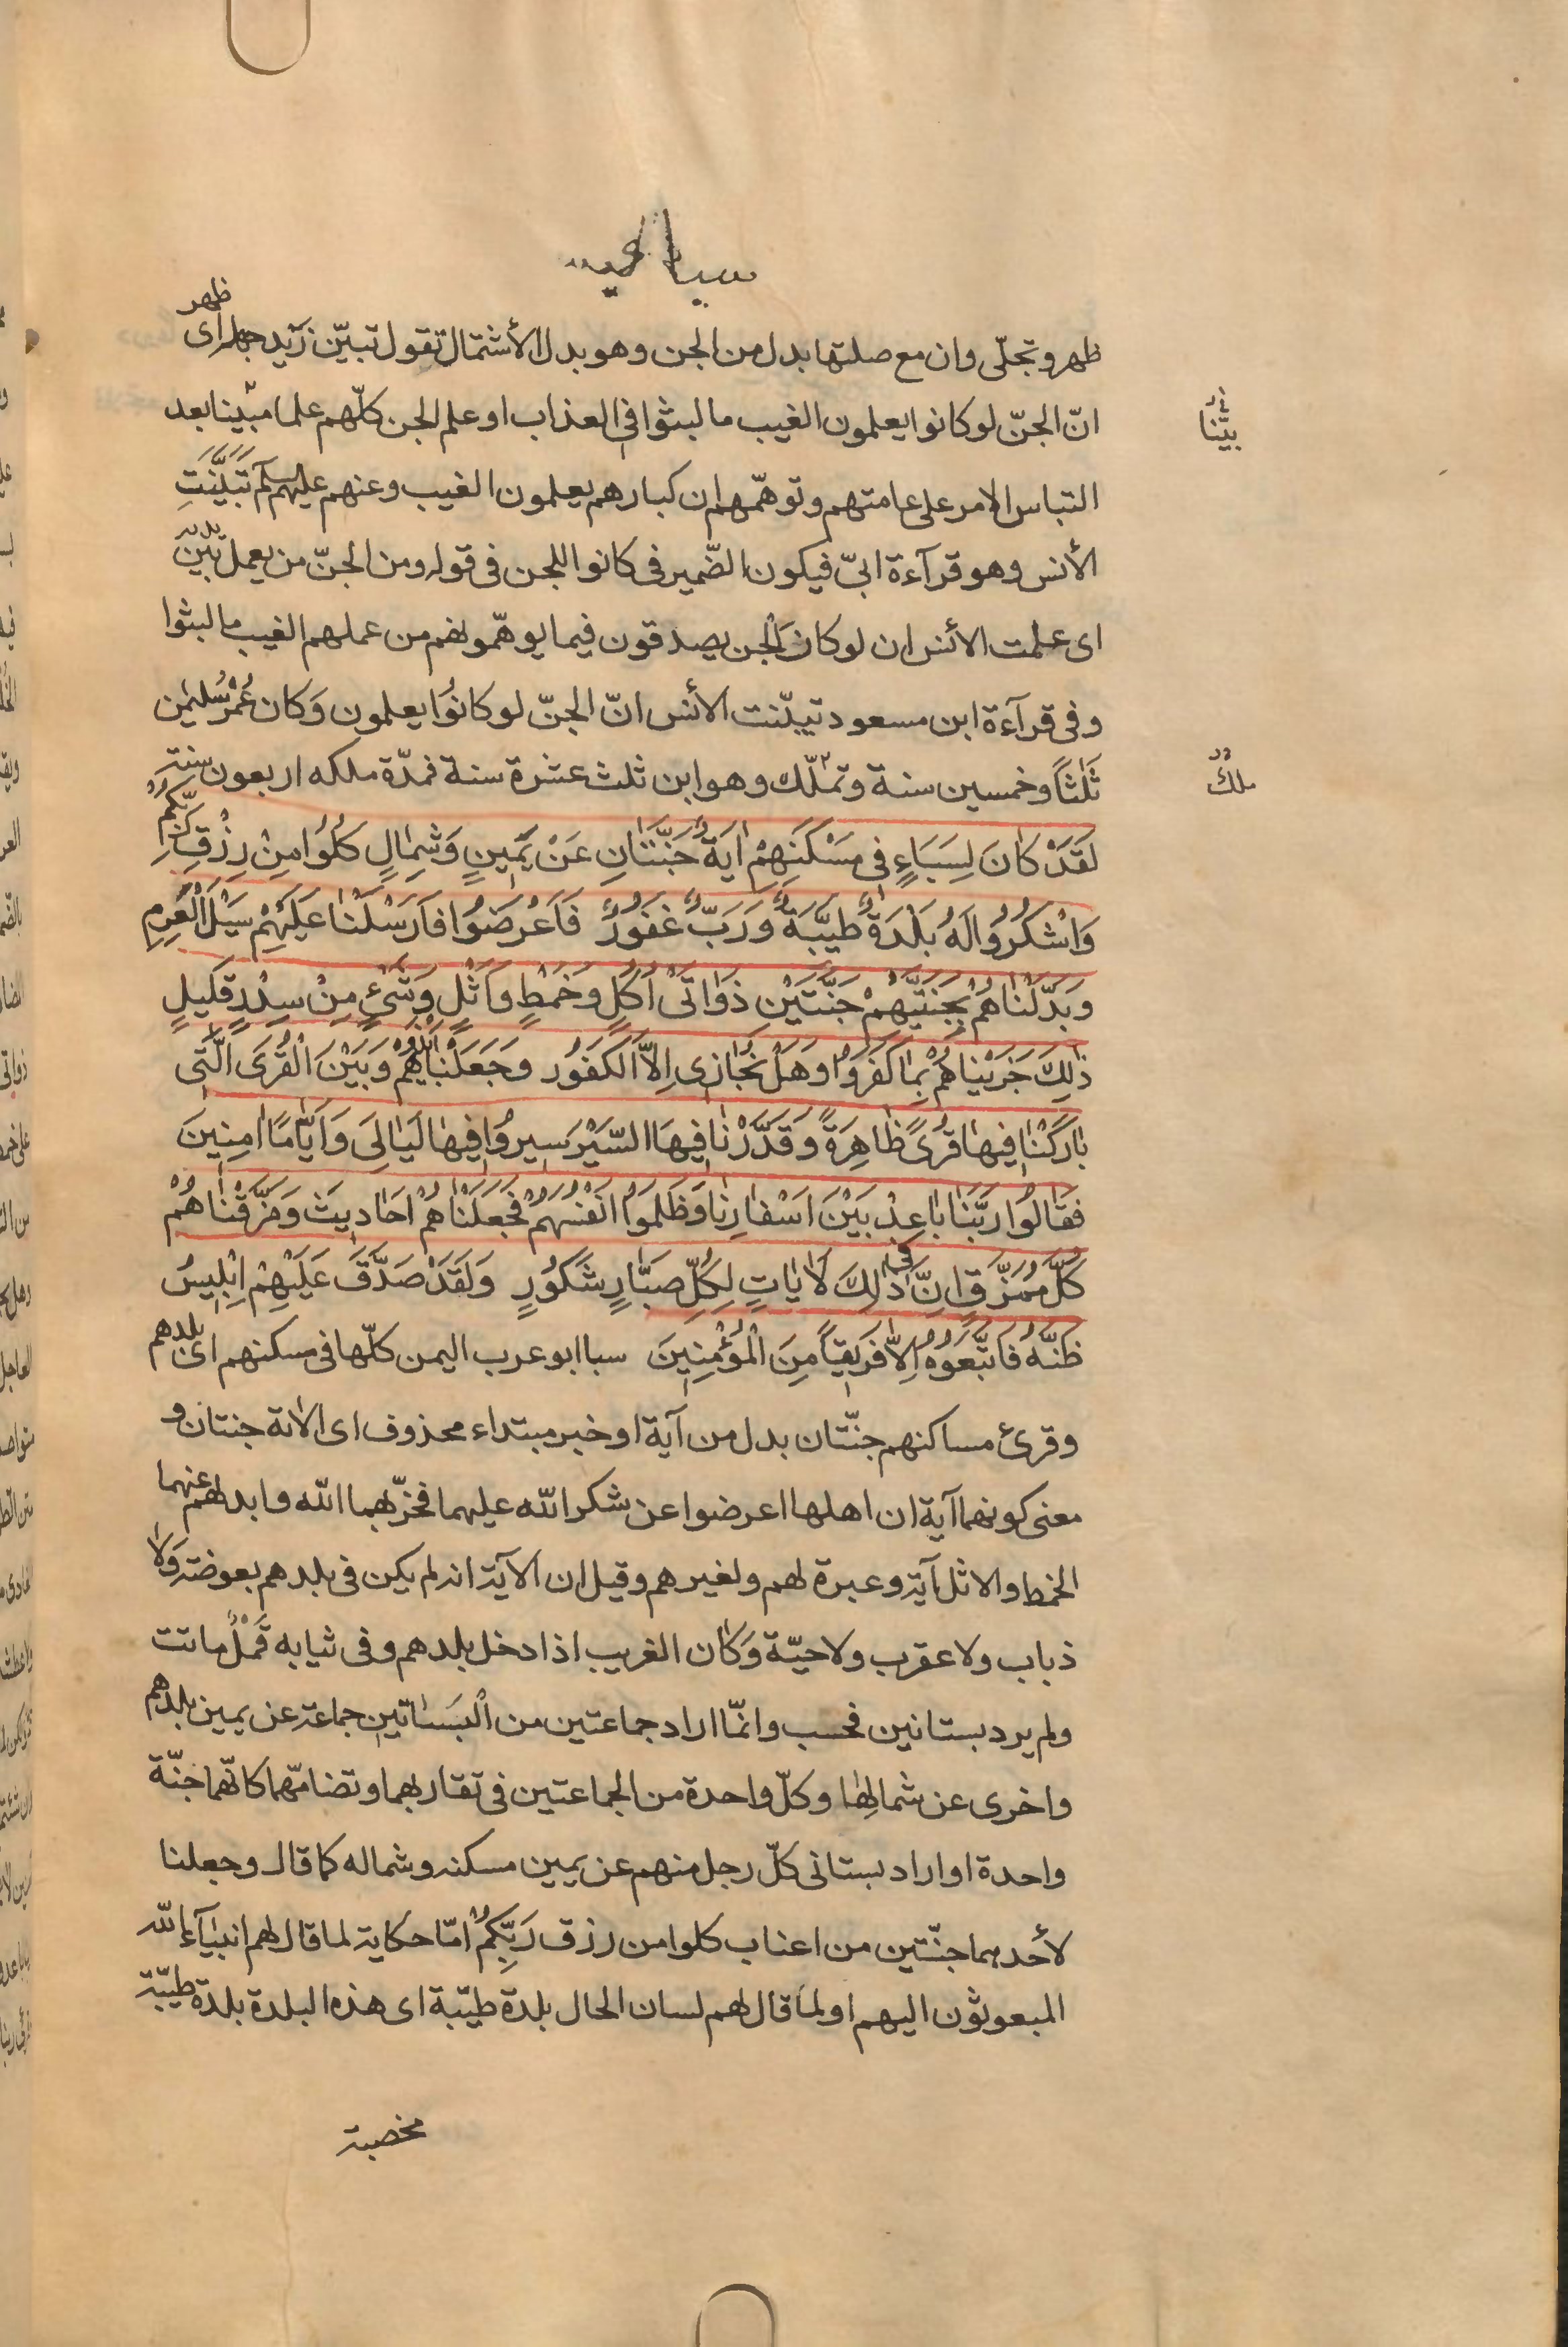 سبا
ظهر وتجلّى وان مع صلتها بدل من الجن وهو بدل الأشتمال تقول تبيّن زيد جهله اى ظهر
انّ الجنّ لو كانوا يعلمون الغيب ما لبثوا فى العذاب او علم الجن كلّهم علما مبينا بعد
بيّنا
التباس الامر على عامتهم وتوهّمهم ان كبارهم يعلمون الغيب وعنهم عليهم السلم تَبَيَّنَتِ
الأنس وهو قرآءة ابىّ فيكون الضّمير فى كانوا للجن فى قوله ومن الجنّ من يعمل بين يديه
اى علمت الأنس ان لو كان الجن يصدقون فيما يوهّمونهم من عملهم الغيب ما لبثوا
وفى قرآءة ابن مسعود تبيّنت الأنس انّ الجنّ لو كانوُا يعلمون وَكان عُمْرُ سُليمٰن
ثَلٰثاً وخمسين سنة وتملّك وهو ابن ثلث عشرة سنة فمدّة ملكه اربعون سنة
ملك
لَقَدْ كٰانَ لِسَبَاءٍ فى مَسْكَنِهِمْ اٰيَةٌ جَنَّتٰانِ عَنْ يَمٖينٍ وَشِمٰالٍ كُلُوُا مِنْ رِزْقِ رَبِّكُمْ
وَاشْكُرُوُا لَهُ بَلْدَةٌ طَيِّبَةٌ وَرَبٌّ غَفُوُرٌ فَاَعْرَضُوُا فَاَرْسَلْنٰا عَلَيْهِمْ سَيْلَ الْعَرِمِ
وَبَدَّلْنٰاهُمْ بِجَنَّتَيْهِمْ جَنَّتَيْنِ ذَوٰاتَىْ اُكُلٍ وخَمْطٍ وَاَثْلٍ وَشَىْءٍ مِنْ سِدْرٍ قَلٖيلٍ
ذٰلِكَ جَزَيْنٰاهُمْ بِمٰا كَفَرُوُا وَهَلْ نُجٰازٖى اِلاَّ الْكَفُوُر وَجَعَلْنٰا بَيْنَهُمْ وَبَيْنَ الْقُرَى الَّتٖى
بٰارَكْنٰا فٖيهٰا قُرىً ظٰاهِرَةً وَقَدَّرْنٰا فٖيهَا السَّيْرَ سٖيرُوُا فٖيهٰا لَيٰالِىَ وَاَيّٰامًا اٰمِنٖينَ
فَقٰالُوُا رَبَّنٰا بٰاعِدْ بَيْنَ اَسْفٰارِنٰا وَظَلَمُوُا اَنْفُسَهُمْ فَجَعَلْنٰاهُمْ اَحٰادٖيثَ وَمَزَّقْنٰاهُمْ
كُلَّ مُمَزَّقٍ اِنَّ فٖى ذٰلِكَ لَاٰيٰاتٍ لِكُلِّ صَبّٰارٍ شَكُوُرٍ وَلَقَدْ صَدَّقَ عَلَيْهِمْ اِبْلٖيسُ
ظَنَّهُ فَاتَّبَعُوُهُ اِلاّٰ فَرٖيقًا مِنَ الْمُؤْمِنٖينَ سبا ابو عرب اليمن كلّها فى مسكنهم اى بلدهم
وقرئ مساكنهم جنّتان بدل من آية او خبر مبتداء محذوف اى الاية جنتان و
معنى كونهما آية ان اهلها اعرضوا عن شكر الله عليهما فخرّبهما الله وابدلهم عنهما
الخمط والاثل آية وعبرة لهم ولغيرهم وقيل ان الآية انه لم يكن فى بلدهم بعوضة وَلاٰ
ذباب ولا عقرب ولا حيّة وَكٰان الغريب اذا دخل بلدهم وفى ثيابه قَمْلٌ ماتت
ولم يرد بستانين فحسب وانّما اراد جماعتين من الْبَسٰاتٖين جماعة عن يمين بلدهم
واخرى عن شمالِهٰا وكلّ واحدة من الجماعتين فى تقاربهما وتضامّهما كانّهما جنّة
واحدة او اراد بستانى كلّ رجل منهم عن يمين مسكنه وشماله كما قال وجعلنا
لأحدهما جنّتين من اعناب كلوا من رزق رَبِّكُمْ امّا حكاية لما قال لهم انبيٰآء الله
المبعوثون اليهم او لما قال لهم لسان الحال بلدة طيّبة اى هذه البلدة بلدة طيّبة
مخصبة